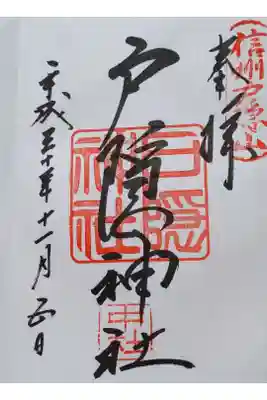 信州戸隠山
奉拝
戸隠神社
戸隠
神社
中社
平成三十年十一月五日